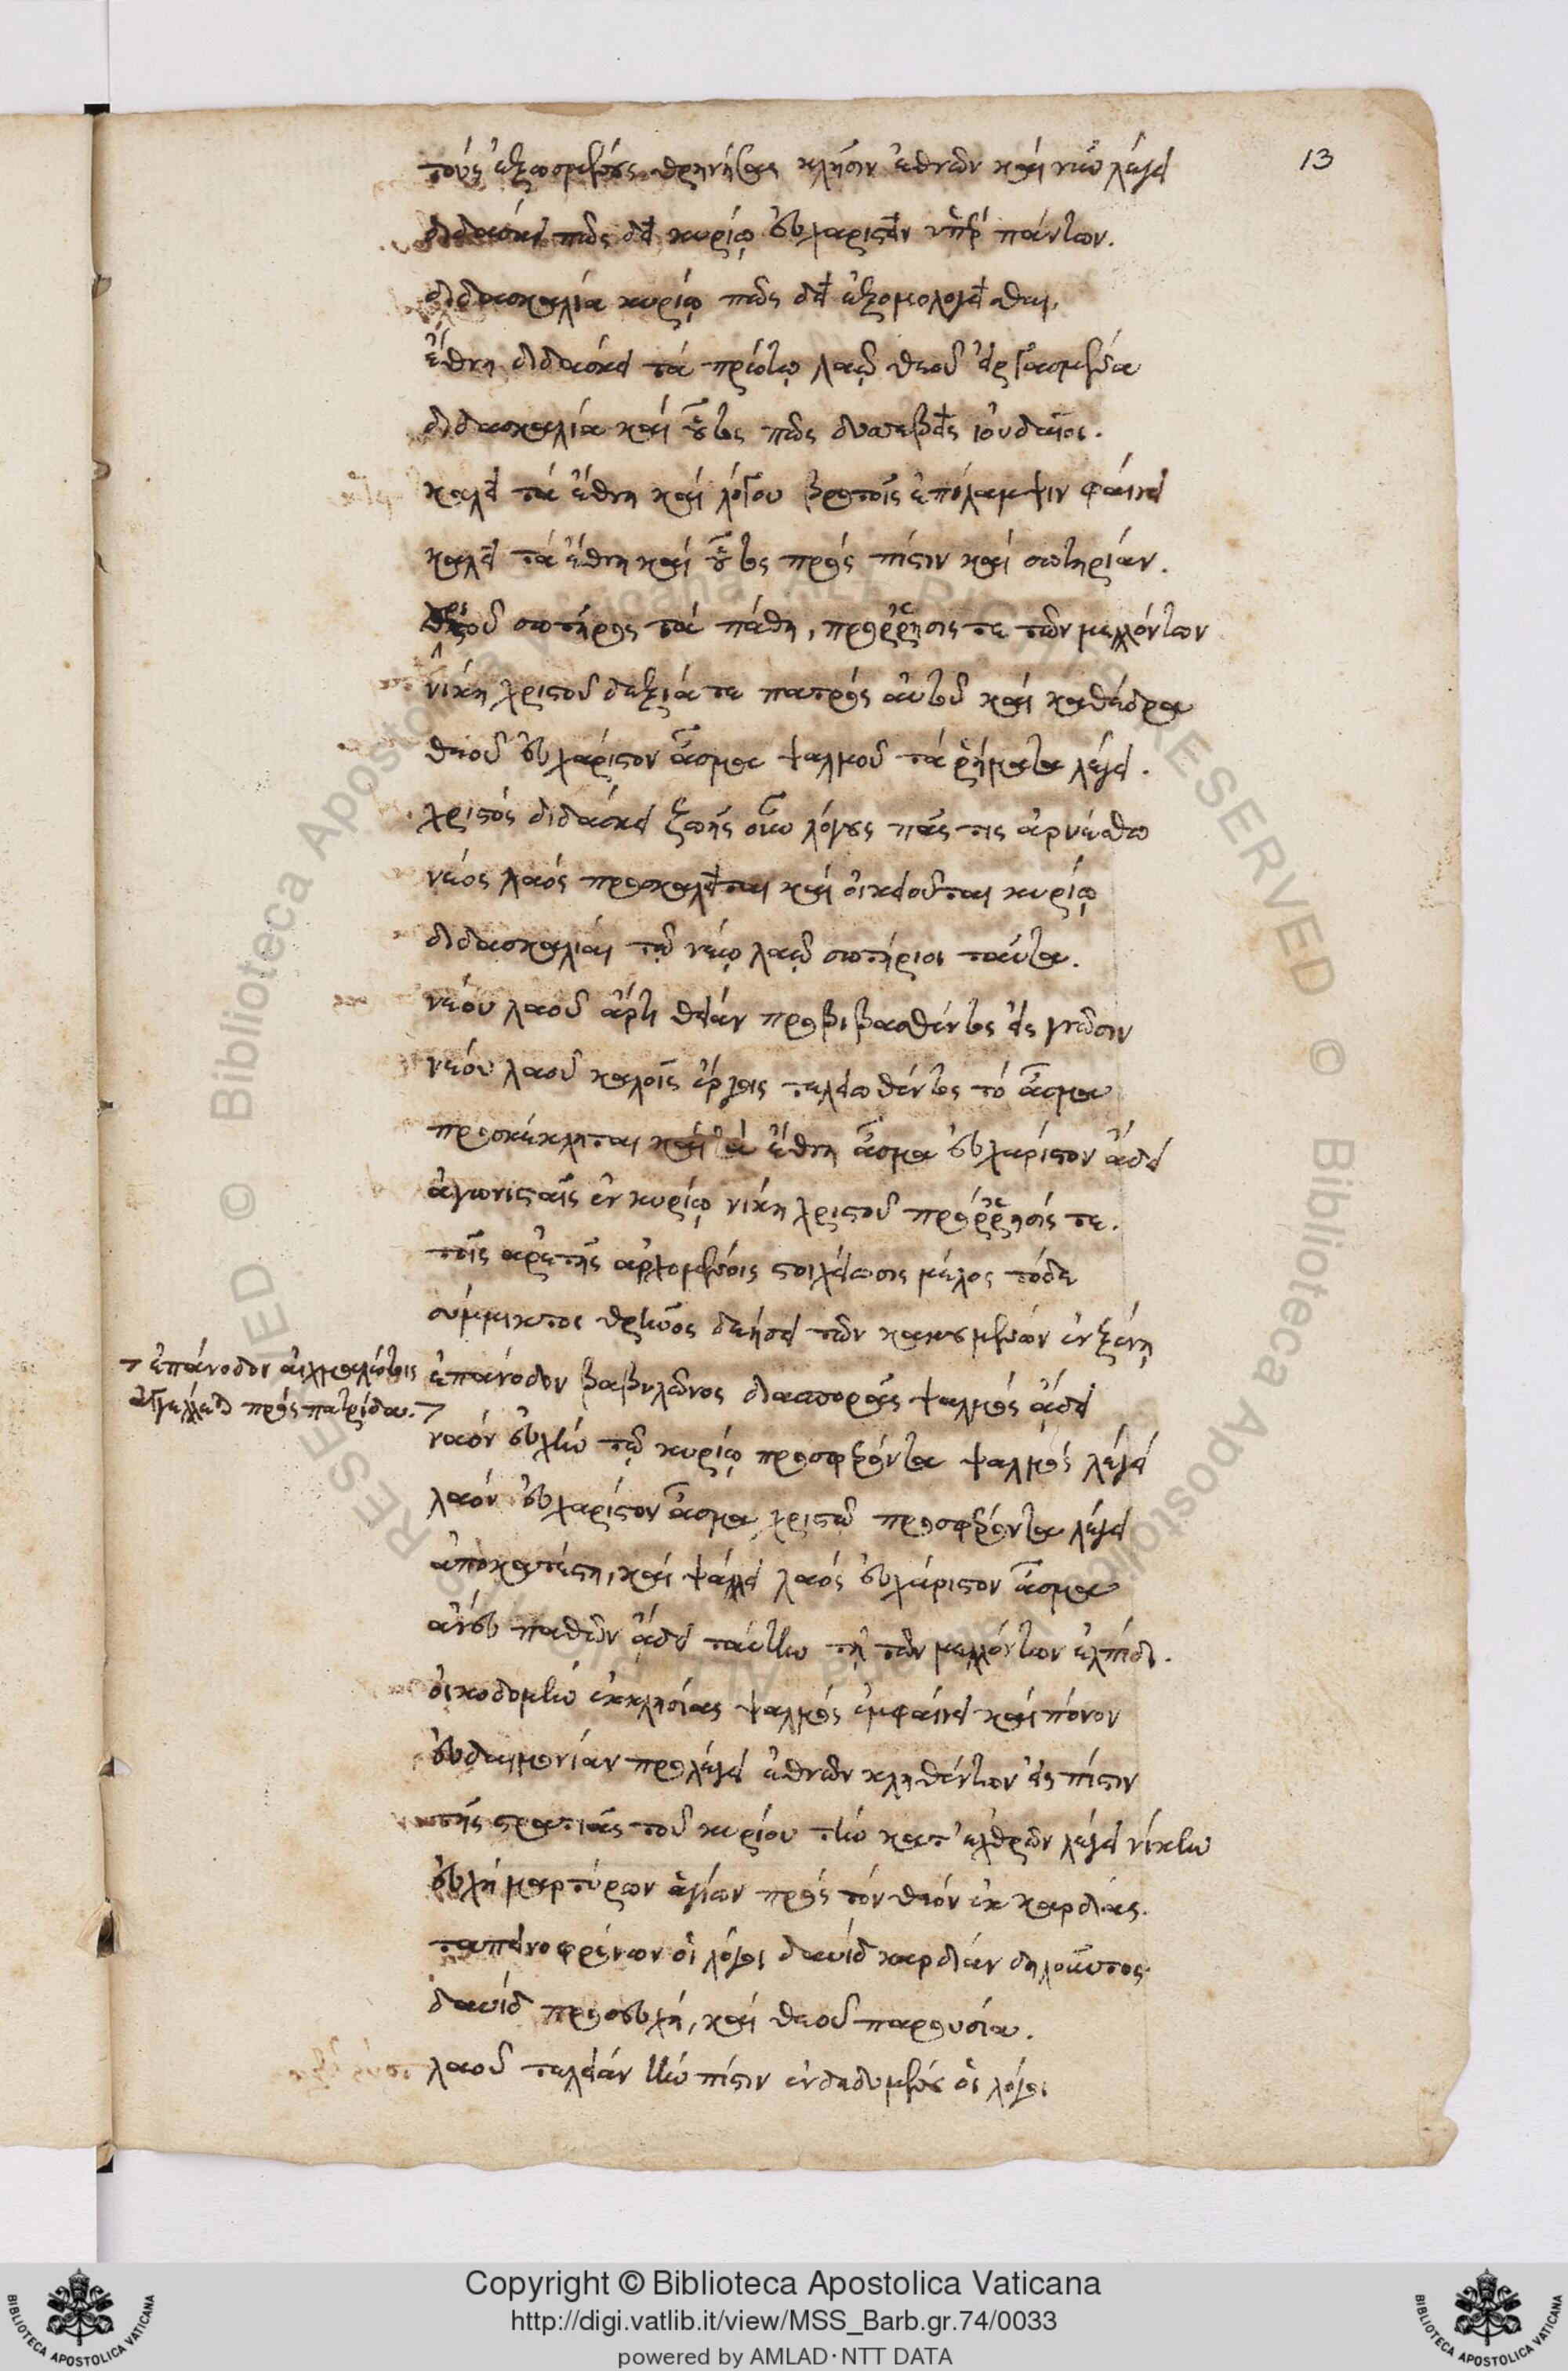 13
τοὺς ἐξωσμένους θρηνήσας κλῆσιν ἐθνῶν καὶ νῦν λέγει
διδάσκει πῶς δεῖ κυρίῳ εὐχαριστεῖν ὑπὲρ πάντων.
διδασκαλία κυρίῳ πῶς δεῖ ἐξομολογεῖσθαι.
ἔθνη διδάσκει τὰ πρώτῳ λαῷ θεοῦ εἰργασμένα
διδασκαλία καὶ οὗτος πῶς δυσσεβεῖς ἰουδαῖοι.
καλεῖ τὰ ἔθνη καὶ λόγου βροτοῖς ἐπίλαμψιν φαίνει
καλεῖ τὰ ἔθνη καὶ οὗτος πρὸς πίστιν καὶ σωτηρίαν.
σωτῆρος τὰ πάθη, πρόρρησίς τε τῶν μελλόντων
νίκη χριστοῦ δεξιά τε πατρὸς αὐτοῦ καὶ καθέδρα
θεοῦ εὐχάριστον ᾆσμα ψαλμοῦ τὰ ῥήματα λέγει.
χριστὸς διδάσκει ζωῆς οὖν λόγους πᾶς τις ἀρνείσθω
νέος λαὸς προσκαλεῖται καὶ οἰκειοῦται κυρίῳ
διδασκαλίαι τῷ νέῳ λαῷ σωτήριοι ταῦτα.
νέου λαοῦ ἄρτι θείαν προβιβασθέντος εἰς γνῶσιν
νέου λαοῦ καλοῖς ἔργοις τελειωθέντος τὸ ᾆσμα
προσκέκληται καὶ τὰ ἔθνη ᾆσμα εὐχάριστον ᾄδει
ἀγωνισταῖς ἐν κυρίῳ νίκη χριστοῦ πρόρρησίς τε.
τοῖς ἀρετῆς ἀρχομένοις στοιχείωσις μέλος τόδε
σύμμικτος θρῆνος δεήσει τῶν κακουμένων ἐν ξένῃ
ἐπάνοδον αἰχμαλώτοις
ἀγγέλλει πρὸς πατρίδα.
ἐπάνοδον βαβυλῶνος διασπορᾶς ψαλμὸς ᾄδει
ναὸν εὐχὴν τῷ κυρίῳ προσφέροντα ψαλμὸς λέγει
λαὸν εὐχάριστον ᾆσμα χριστῷ προσφέροντα λέγει
ἀποκατέστη, καὶ ψάλλει λαὸς εὐχάριστον ᾆσμα
ἄνευ παθῶν ᾄδει ταύτην τῇ τῶν μελλόντων ἐλπίδι.
οἰκοδομὴν ἐκκλησίας ψαλμὸς ἐμφαίνει καὶ πόνον
εὐδαιμονίαν προλέγει ἐθνῶν κληθέντων εἰς πίστιν
τῆς στρατιᾶς τοῦ κυρίου τὴν κατ' ἐχθρῶν λέγει νίκην
εὐχὴ μαρτύρων ἁγίων πρὸς τὸν θεὸν ἐκ καρδίας.
ταπεινοφρόνων οἱ λόγοι δαυίδ καρδίαν δηλοῦντος.
δαυίδ προσευχή, καὶ θεοῦ παρουσία.
λαοῦ τελείαν τὴν πίστιν ἐνδεδυμένου οἱ λόγοι
Copyright © Biblioteca Apostolica Vaticana
http://digi.vatlib.it/view/MSS_Barb.gr.74/0033
powered by AMLAD·NTT DATA